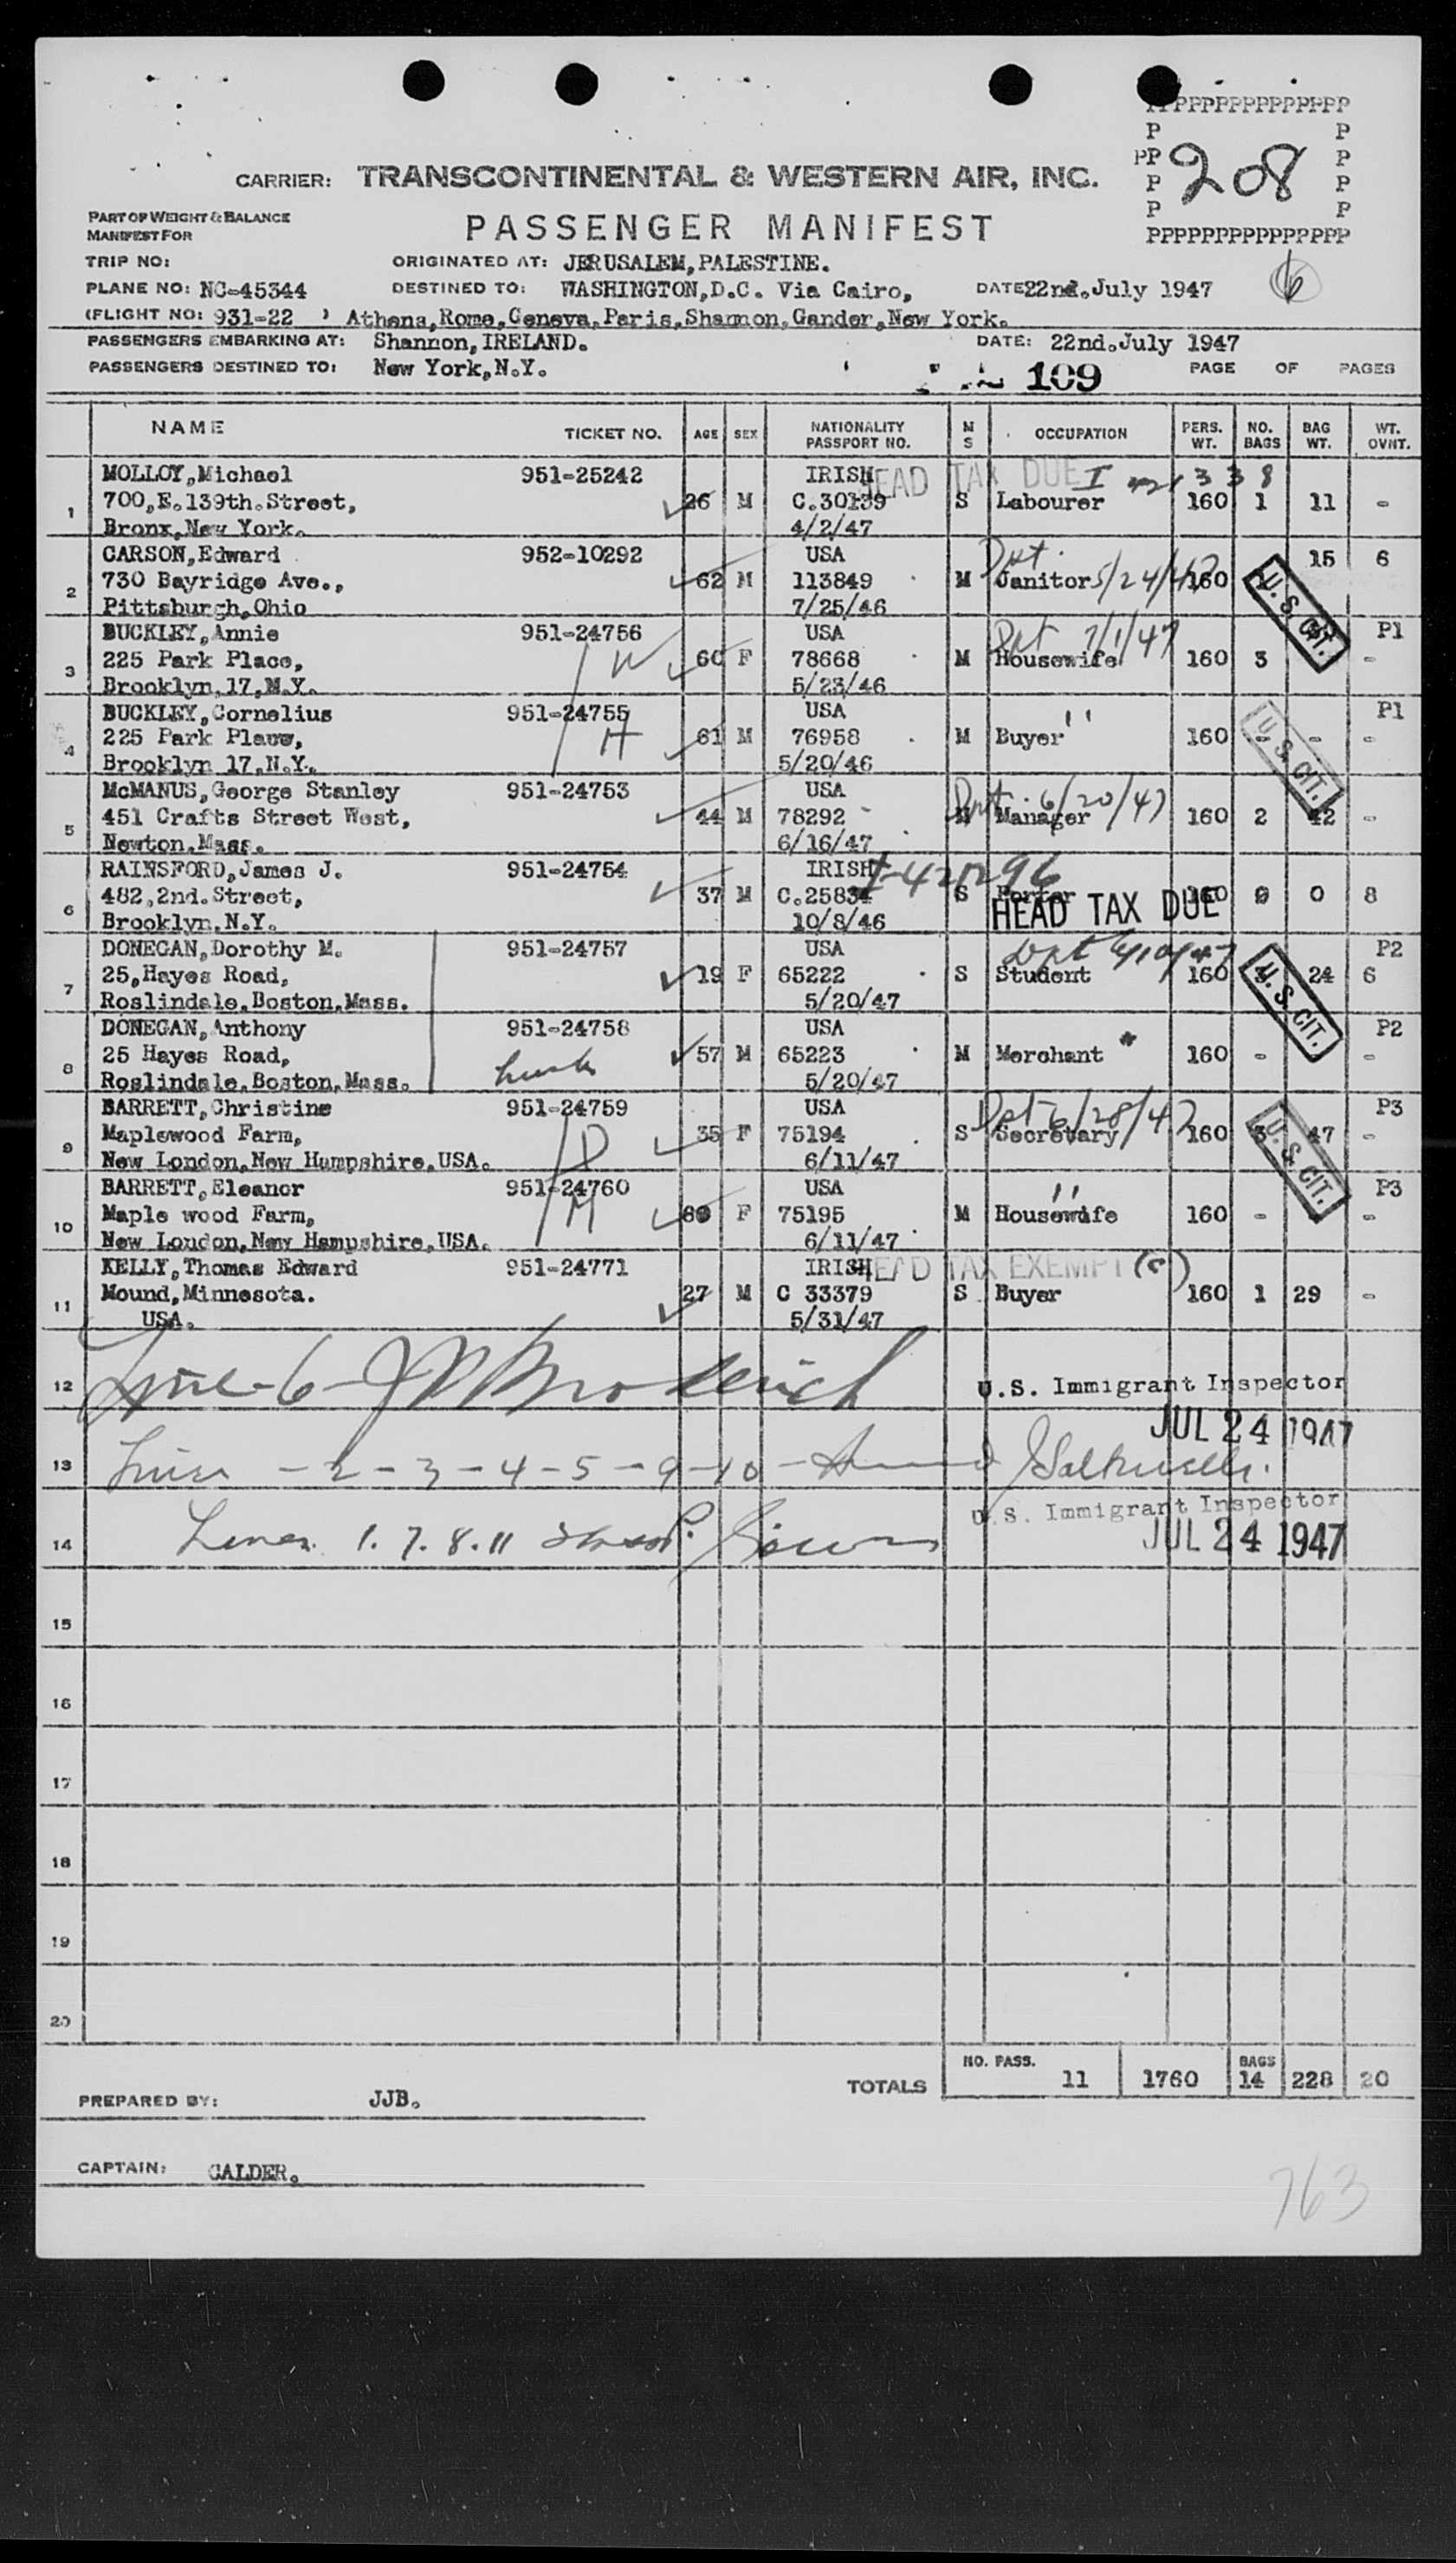 PPPPPPPPPPPPPP
P P
PP 208 P
P P
P P
PPPPPPPPPPPPPPP
CARRIER: TRANSCONTINENTAL & WESTERN AIR, INC.
PART OF WEIGHT & BALANCE
MANIFEST FOR
PASSENGER MANIFEST
TRIP NO: ORIGINATED AT: JERUSALEM, PALESTINE.
PLANE NO: NC-45344 DESTINED TO: WASHINGTON, D.C. Via Cairo, DATE 22nd. July 1947
(FLIGHT NO: 931-22 ) Athens, Rome, Geneva, Paris, Shannon, Gander, New York.
PASSENGERS EMBARKING AT: Shannon, IRELAND. DATE: 22nd. July 1947
PASSENGERS DESTINED TO: New York, N.Y. 109 PAGE OF PAGES
NAME TICKET NO. AGE SEX NATIONALITY PASSPORT NO. M S OCCUPATION PERS. WT. NO. BAGS BAG WT. WT. OVNT.
MOLLOY, Michael 951-25242 IRISH HEAD TAX DUE
1 700, E. 139th. Street, 26 M C.30139 S Labourer 160 1 11 -
Bronx, New York. 4/2/47
CARSON, Edward 952-10292 USA Dpt. 15 6
2 730 Bayridge Ave., 62 M 113849 M Janitor 5/24/47 160 U.S. CIT.
Pittsburgh, Ohio 7/25/46
BUCKLEY, Annie 951-24756 USA Dpt 7/1/47 P1
3 225 Park Place, W 60 F 78668 M Housewife 160 3 -
Brooklyn, 17, N.Y. 5/23/46
BUCKLEY, Cornelius 951-24755 USA " P1
4 225 Park Place, H 61 M 76958 M Buyer 160 - - - U.S. CIT.
Brooklyn 17, N.Y. 5/20/46
McMANUS, George Stanley 951-24753 USA Dpt. 6/20/47
5 451 Crafts Street West, 44 M 78292 M Manager 160 2 42 -
Newton, Mass. 6/16/47
RAINSFORD, James J. 951-24754 IRISH
6 482, 2nd. Street, 37 M C.25834 S Porter 160 0 0 8
Brooklyn, N.Y. 10/8/46 HEAD TAX DUE
DONEGAN, Dorothy M. 951-24757 USA Dpt P2
7 25, Hayes Road, 19 F 65222 S Student 160 24 6 U.S. CIT.
Roslindale, Boston, Mass. 5/20/47
DONEGAN, Anthony 951-24758 USA P2
8 25 Hayes Road, 57 M 65223 M Merchant " 160 - -
Roslindale, Boston, Mass. 5/20/47
BARRETT, Christine 951-24759 USA Dpt 6/28/47 P3
9 Maplewood Farm, D 35 F 75194 S Secretary 160 47 - U.S. CIT.
New London, New Hampshire, USA. 6/11/47
BARRETT, Eleanor 951-24760 USA " P3
10 Maple wood Farm, M F 75195 M Housewife 160 - -
New London, New Hampshire, USA. 6/11/47
KELLY, Thomas Edward 951-24771 IRISH HEAD TAX EXEMPT (c)
11 Mound, Minnesota. 27 M C 33379 S Buyer 160 1 29 -
USA. 5/31/47
12 Line-6- U.S. Immigrant Inspector
JUL 24 1947
13 Lines - 2 - 3 - 4 - 5 - 9 - 10 -
U.S. Immigrant Inspector
14 Lines 1. 7. 8. 11 JUL 24 1947
15
16
17
18
19
20
TOTALS NO. PASS. 11 1760 BAGS 14 228 20
PREPARED BY: JJB.
CAPTAIN: CALDER.
763